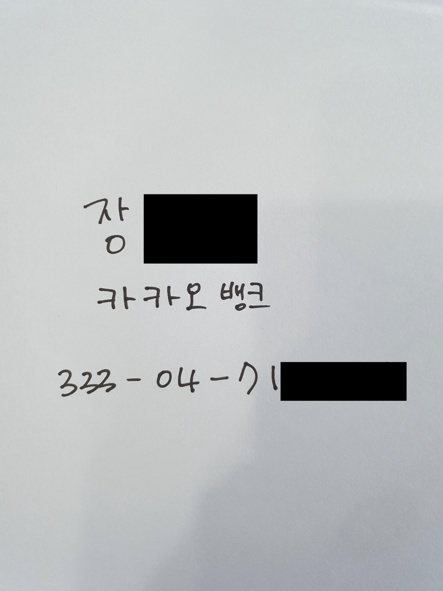 장
카카오 뱅크
323-04-71